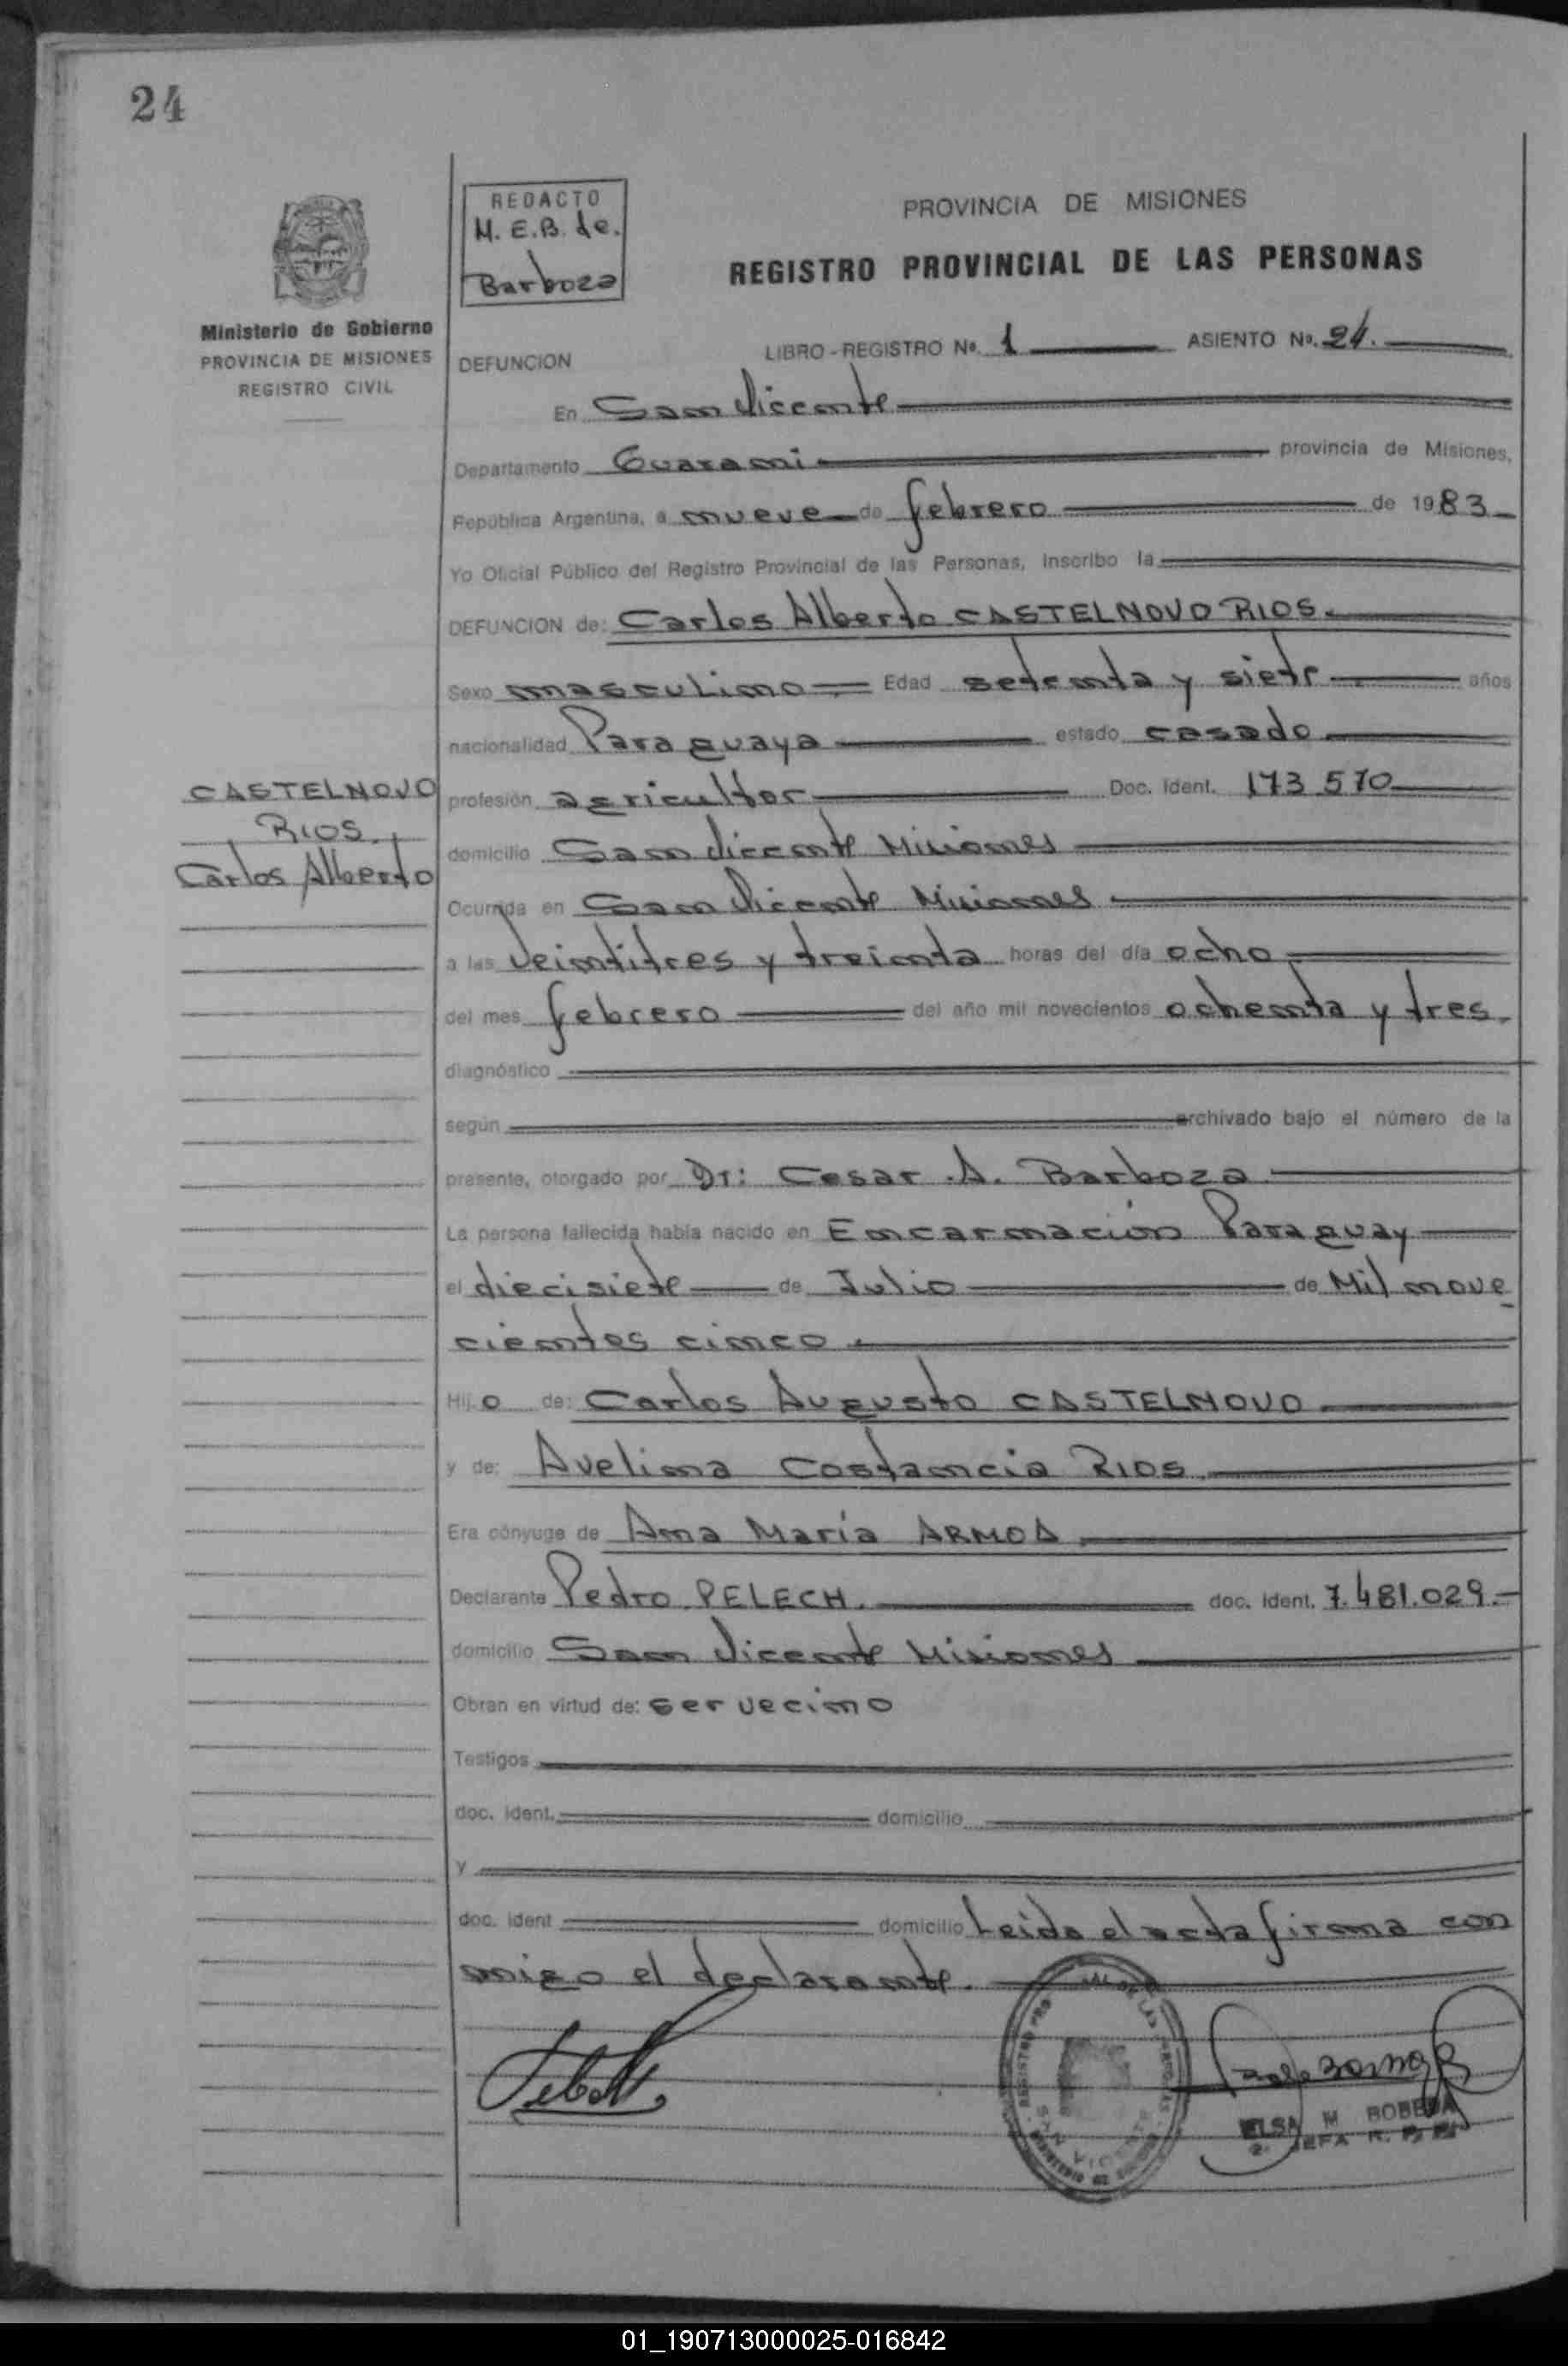 24
REDACTO
M. E. B. de.
Barboza
PROVINCIA DE MISIONES
REGISTRO PROVINCIAL DE LAS PERSONAS
Ministerio de Gobierno
PROVINCIA DE MISIONES
REGISTRO CIVIL
DEFUNCION LIBRO-REGISTRO Nº. 1 ASIENTO Nº. 24.
En San Vicente
Departamento Guarani provincia de Misiones,
República Argentina, a nueve de febrero de 1983
Yo Oficial Público del Registro Provincial de las Personas, inscribo la
DEFUNCION de: Carlos Alberto CASTELNOVO RIOS.
Sexo masculino Edad setenta y siete años
nacionalidad Paraguaya estado casado
CASTELNOVO
RIOS.
Carlos Alberto
profesión agricultor Doc. Ident. 173 570
domicilio San Vicente Misiones
Ocurrida en San Vicente Misiones
a las veintitres y treinta horas del día ocho
del mes febrero del año mil novecientos ochenta y tres.
diagnóstico
según archivado bajo el número de la
presente, otorgado por Dr: Cesar A. Barboza
La persona fallecida había nacido en Encarnación Paraguay
el diecisiete de Julio de Mil nove
cientos cinco
Hijo de: Carlos Augusto CASTELNOVO
y de: Avelina Costancia RIOS
Era cónyuge de Ana María ARMOA
Declarante Pedro PELECH. doc. ident. 7.481.029.-
domicilio San Vicente Misiones
Obran en virtud de: ser vecino
Testigos
doc. ident. domicilio
y
doc. ident domicilio Leida el acta firma con
migo el declarante.
REGISTRO LAS
SAN VICENTE
ELSA M BOBEDA
JEFA R.
01_190713000025-016842